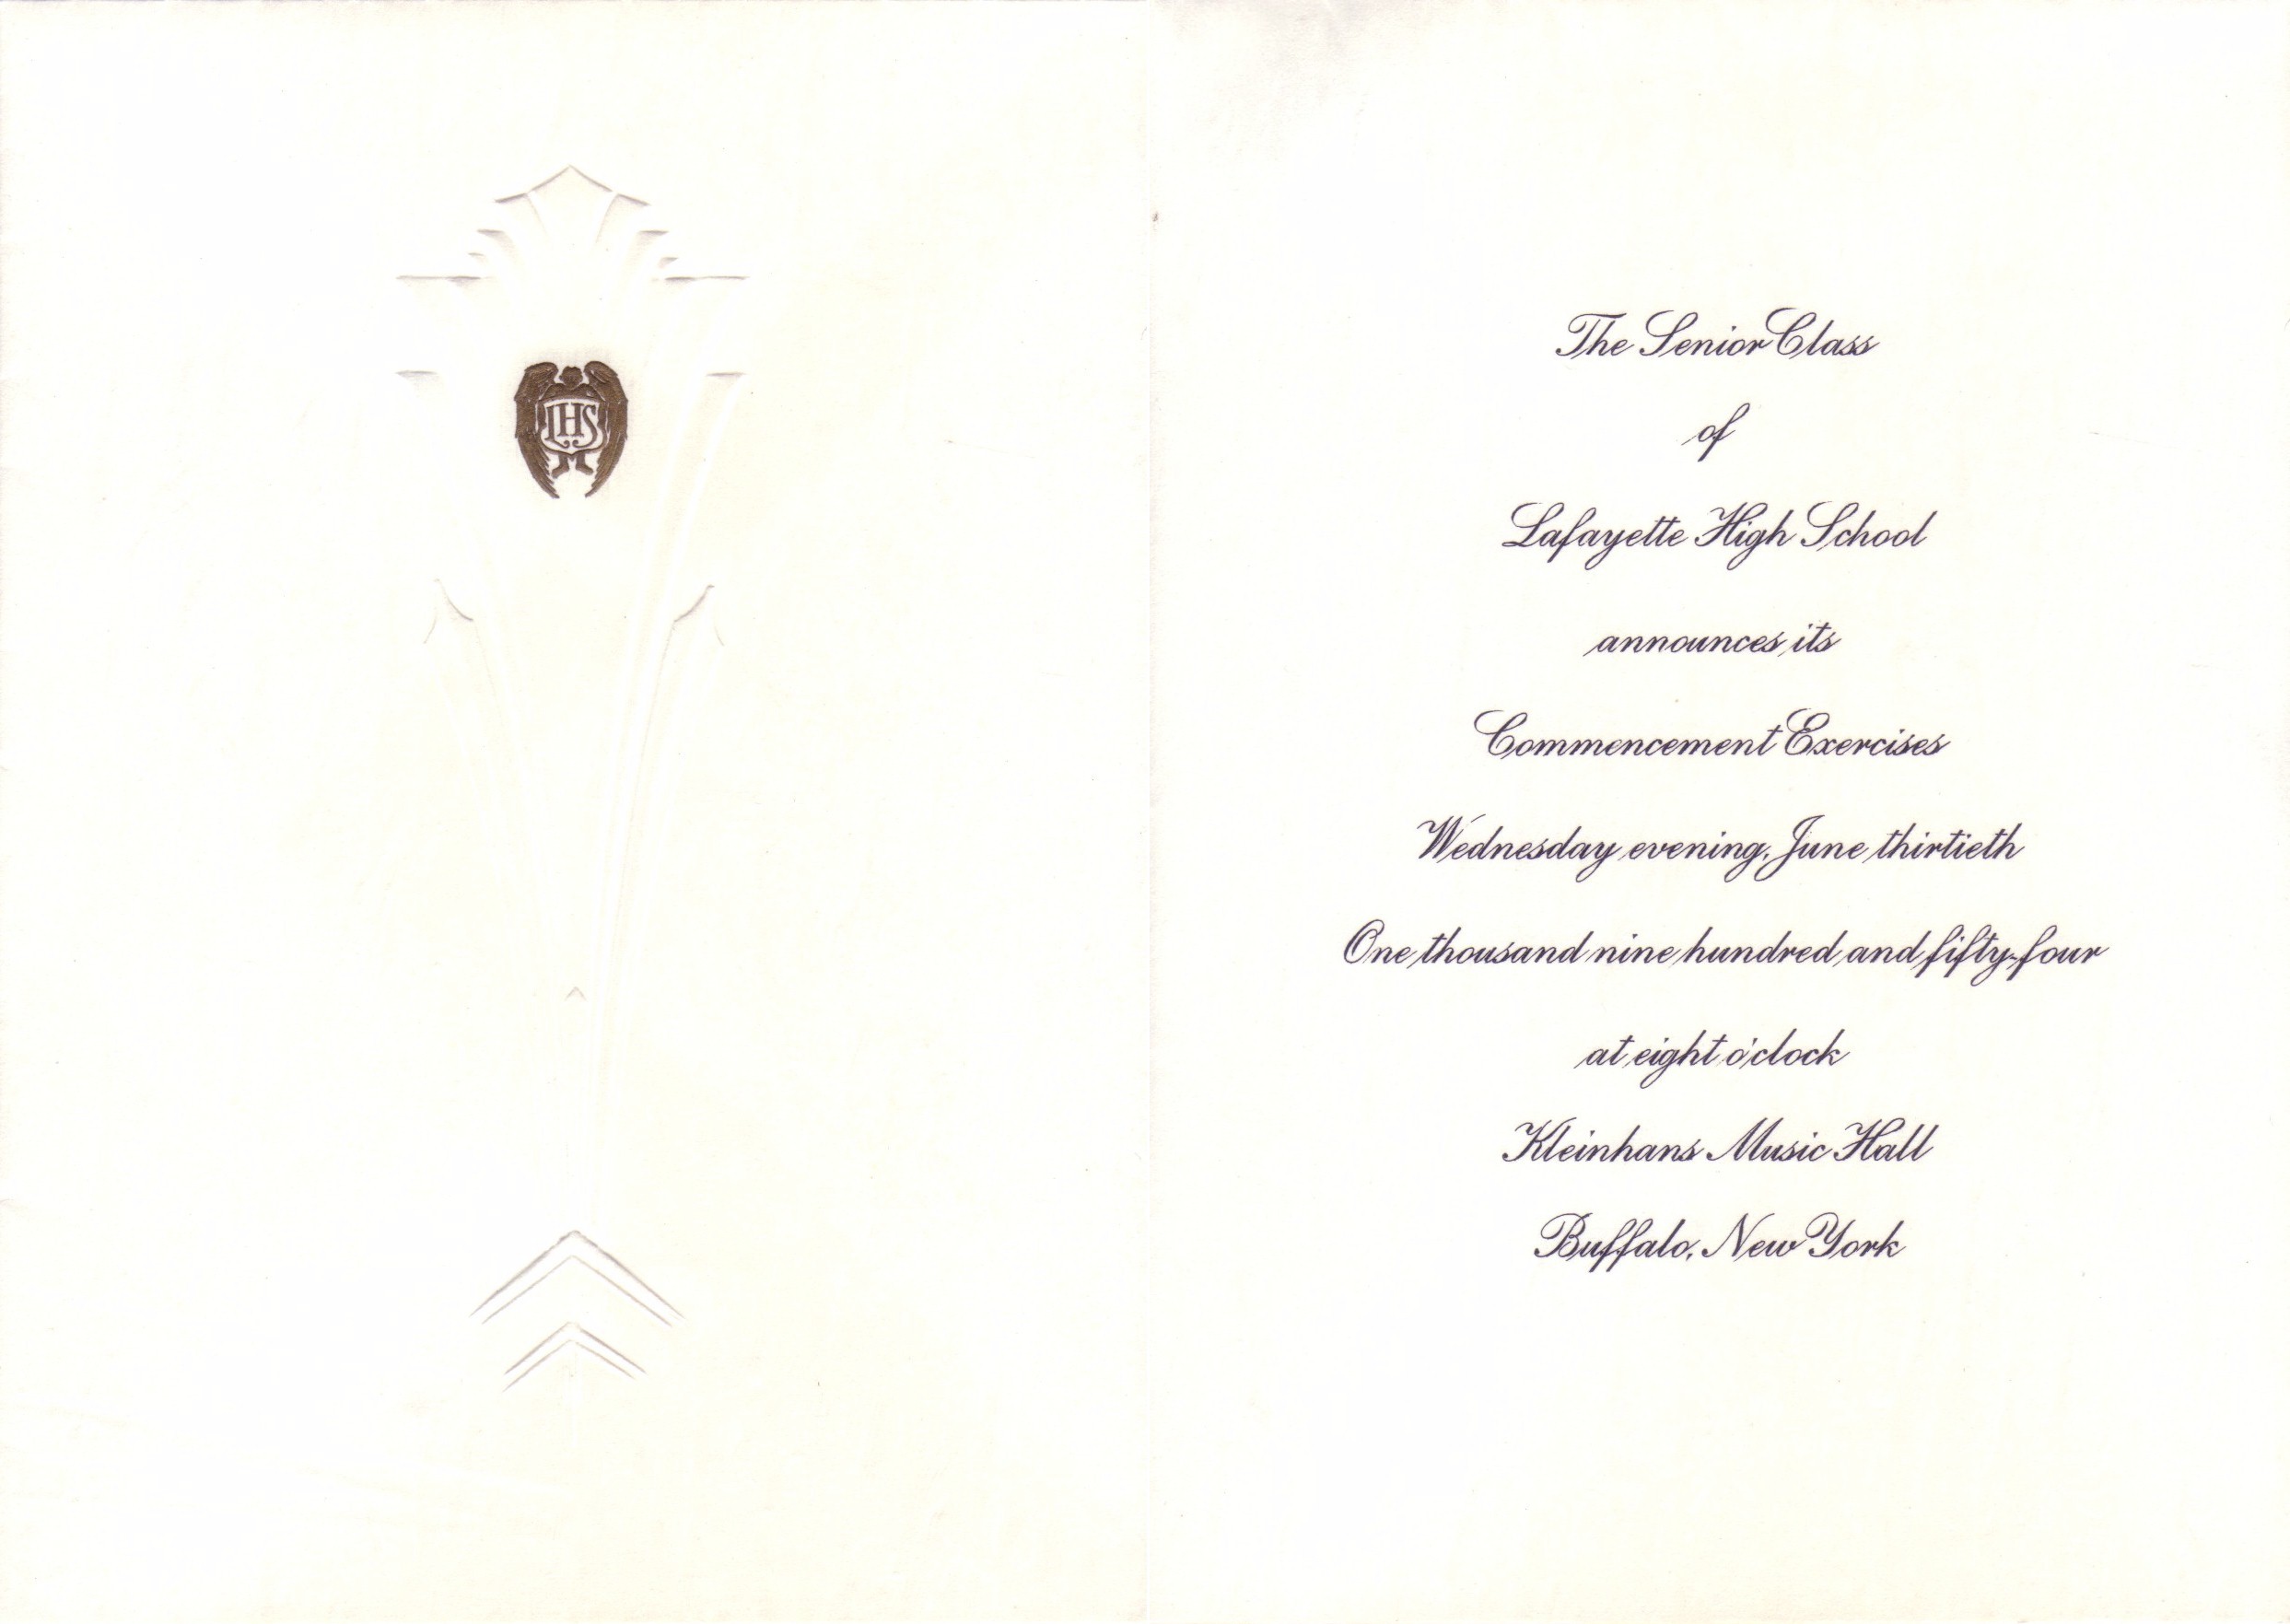 LHS
The Senior Class
of
Lafayette High School
announces its
Commencement Exercises
Wednesday evening, June thirtieth
One thousand nine hundred and fifty-four
at eight o'clock
Kleinhans Music Hall
Buffalo, New York